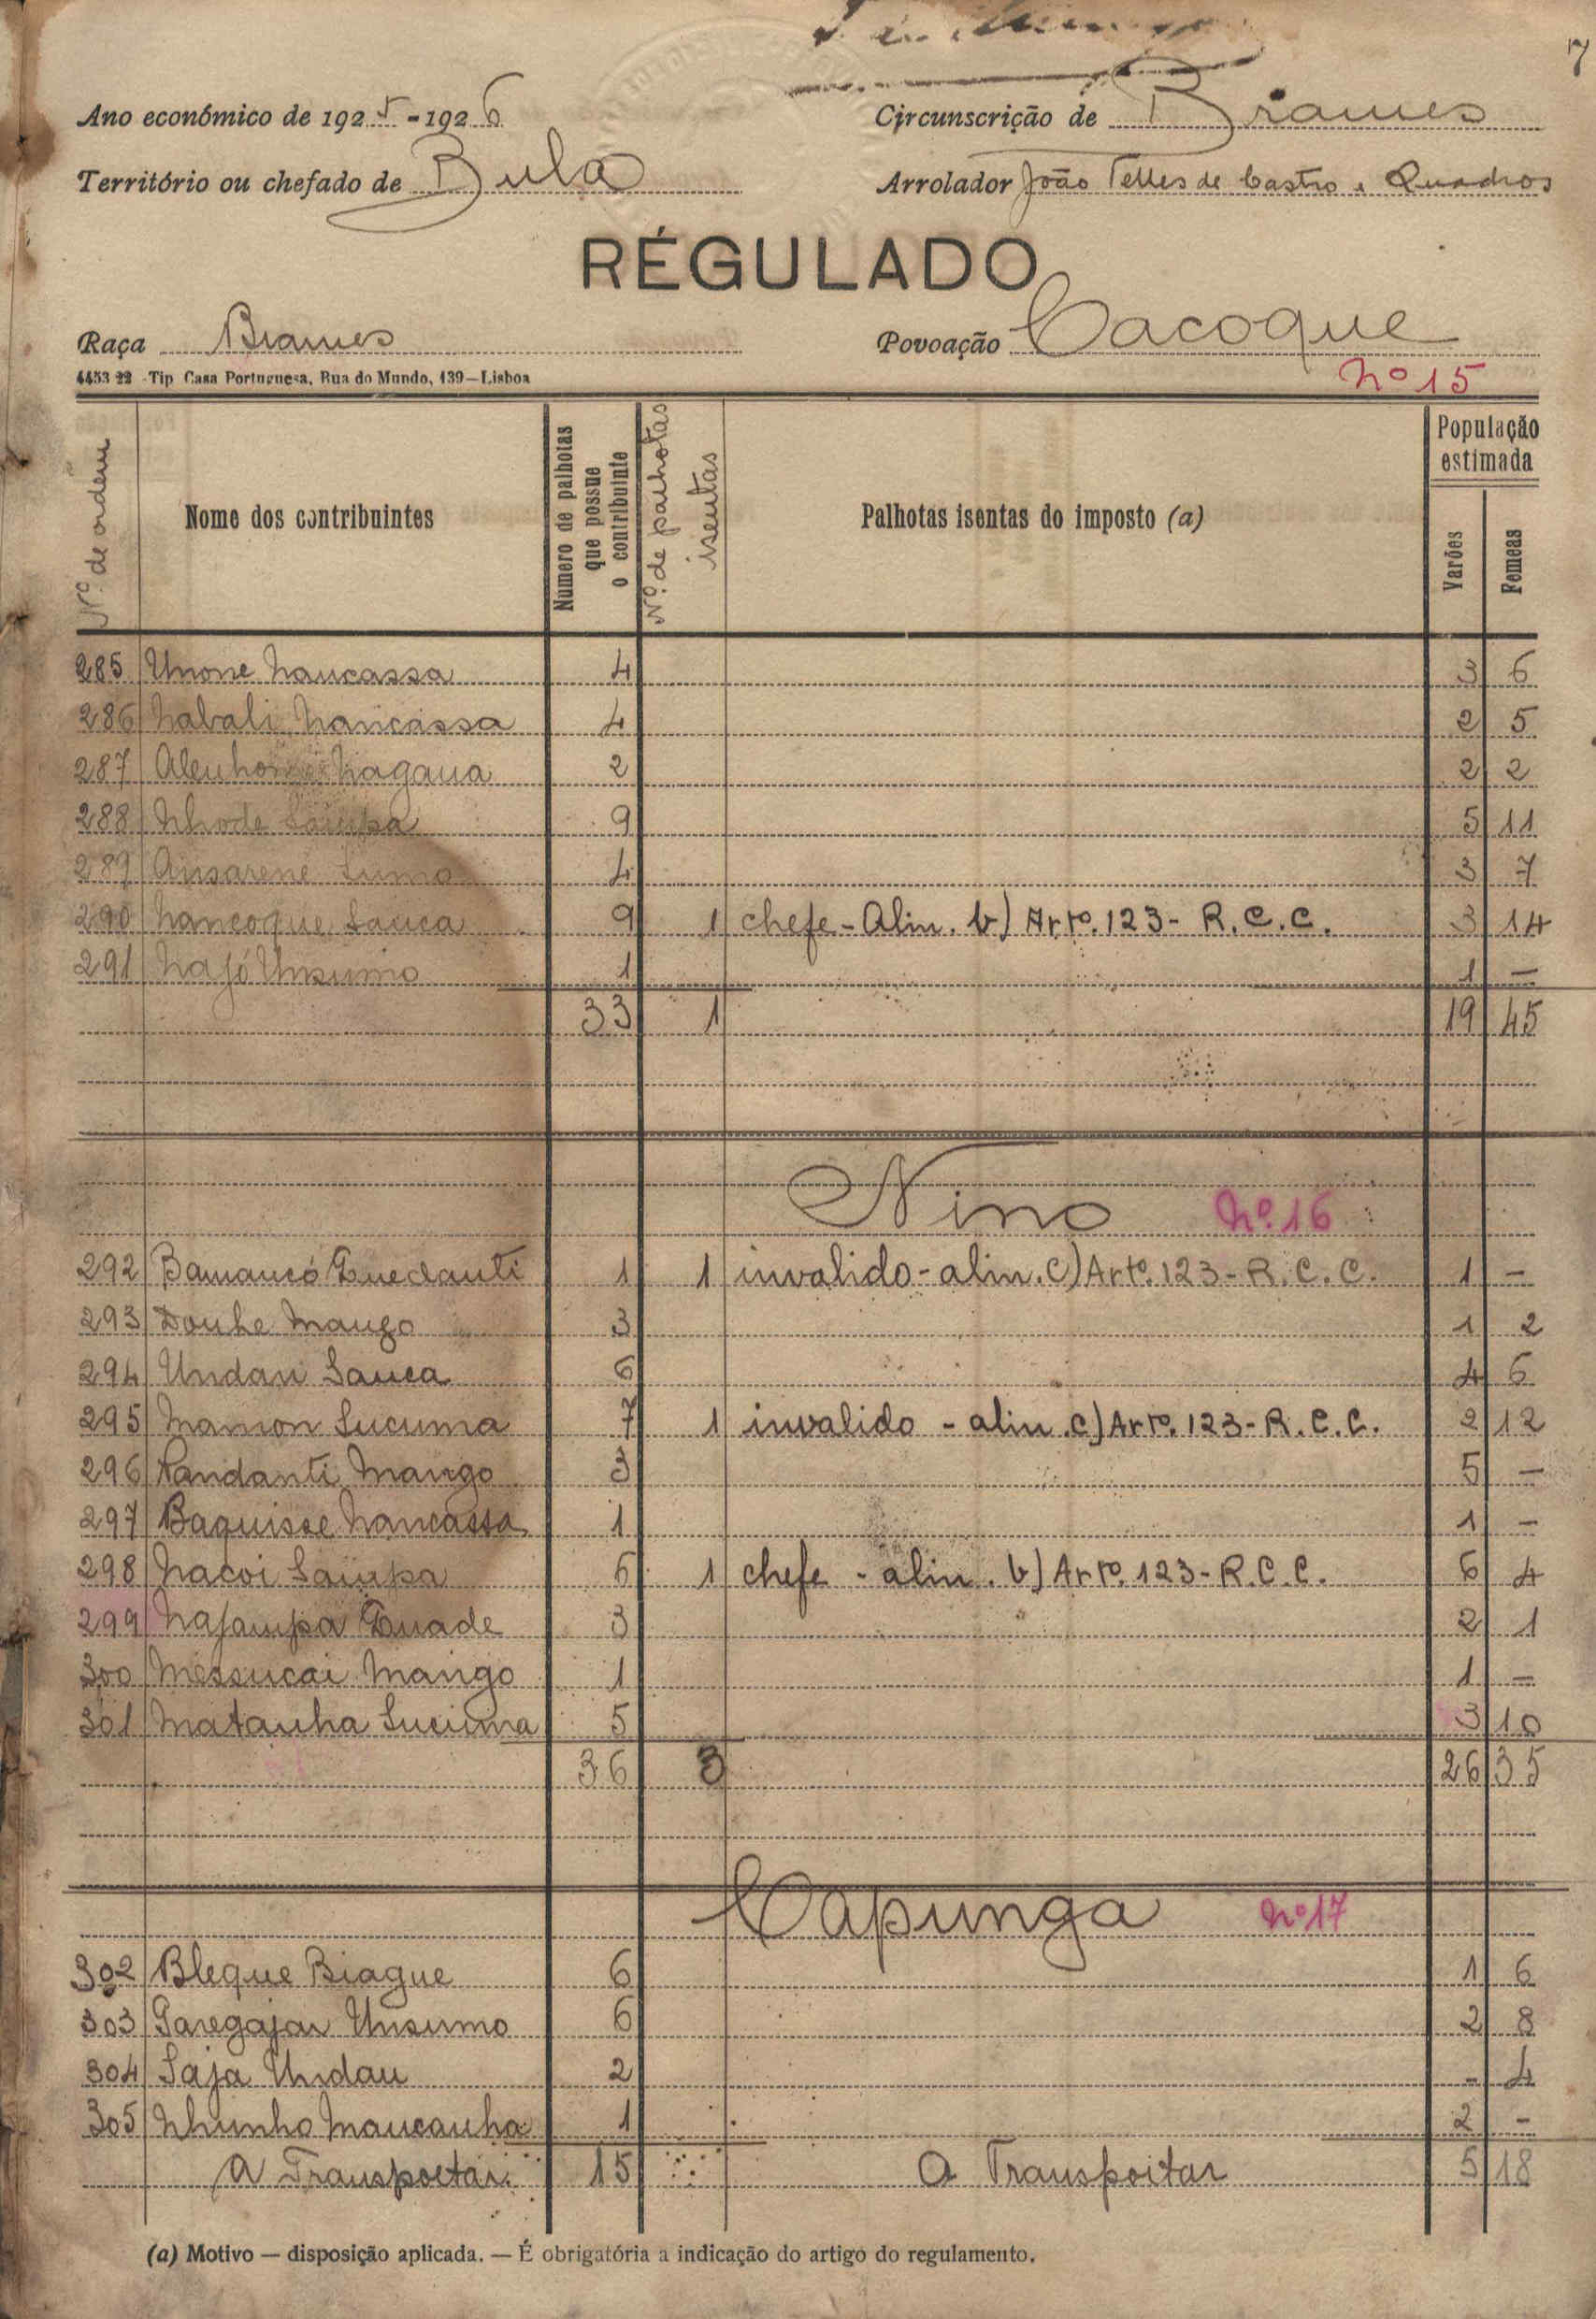 7
Ano económico de 1925-1926
Circunscrição de Brames
Território ou chefado de Bula
Arrolador João Telles de Castro e Quadros
RÉGULADO
Raça Brames
Povoação Cacoque
4453 22 - Tip Casa Portuguesa, Rua do Mundo, 139—Lisboa
Nº 15
Nº de ordem
Nome dos contribuintes
Numero de palhotas que possue o contribuinte
Nº. de palhotas isentas
Palhotas isentas do imposto (a)
População estimada
Varões
Femeas
285 Unone Nancassa 4 3 6
286 Nabali Nancassa 4 2 5
287 Nagana 2 2 2
288 Nhode Saimpa 9 5 11
289 Ansarene Sumo 4 3 7
290 Nancoque Sanca 9 1 chefe - Alin. b) Artº. 123 - R.C.C. 3 14
291 Najó Unsumo 1 1 —
33 1 19 45
Nino Nº. 16
292 Bamancó Quedanti 1 1 invalido - alin. C) Artº. 123 - R.C.C. 1 -
293 Donhe Mango 3 1 2
294 Undan Sanca 6 4 6
295 Mamon Sucuma 7 1 invalido - alin. c) Artº. 123 - R.C.C. 2 12
296 Pandanti Mango 3 5 —
297 Baquisse Nancassa 1 1 -
298 Nacoi Saimpa 6 1 chefe - alin. b) Artº. 123 - R.C.C. 6 4
299 Najampa Quade 3 2 1
300 Messucai Mango 1 1 -
301 Matanha Sucuma 5 3 10
36 3 26 35
Capunga Nº 17
302 Bleque Biague 6 1 6
303 Paregajar Unsumo 6 2 8
304 Saja Undan 2 - 4
305 Nhunho Mancanha 1 2 -
A Transportar 15 A Transportar 5 18
(a) Motivo — disposição aplicada. — É obrigatória a indicação do artigo do regulamento.